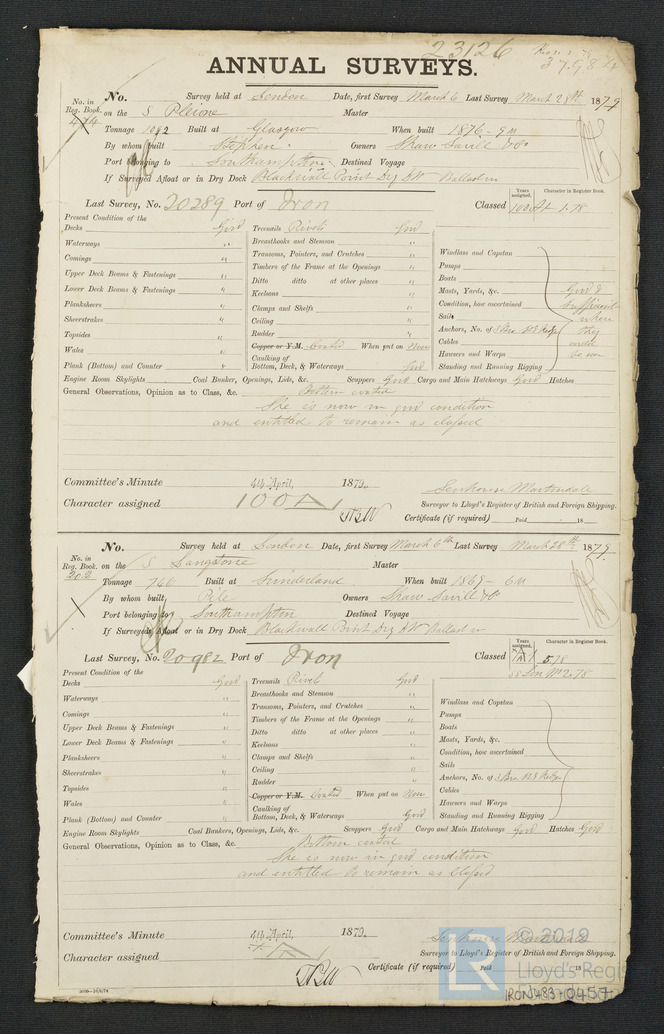 23126
ANNUAL SURVEYS.
No. in Reg. Book. No. Survey held at London Date, first Survey March 6 Last Survey March 28th 1879
on the S Pleione Master
Tonnage 1092 Built at Glasgow When built 1876 - 9M
By whom built Stephen Owners Shaw Savill & Co
Port belonging to Southampton Destined Voyage
If Surveyed Afloat or in Dry Dock Blackwall Point Dry Dk Ballast in
Last Survey, No. 20289 Port of Iron Classed Years assigned, 100A1 Character in Register Book. 1.78
Present Condition of the
Decks Good Treenails Rivets Good
Waterways " Breasthooks and Stemson " Windlass and Capstan
Comings " Transoms, Pointers, and Crutches " Pumps
Upper Deck Beams & Fastenings " Timbers of the Frame at the Openings " Boats
Lower Deck Beams & Fastenings " Ditto ditto at other places " Masts, Yards, &c. Good &
Planksheers " Keelsons " Condition, how ascertained sufficient
Sheerstrakes " Clamps and Shelfs " Sails where
Topsides " Ceiling " Anchors, No. of 3 Bre. they
Wales " Rudder " Cables could
Copper or Y.M. Coated When put on Now Hawsers and Warps be seen
Plank (Bottom) and Counter " Caulking of Bottom, Deck, & Waterways Good Standing and Running Rigging
Engine Room Skylights Coal Bunker, Openings, Lids, &c. Scuppers Good Cargo and Main Hatchways Good Hatches
General Observations, Opinion as to Class, &c. Bottom coated
She is now in good condition
and entitled to remain as classed
Committee's Minute 4th April, 1879. Senhouse Martindale
Character assigned 100A Surveyor to Lloyd's Register of British and Foreign Shipping.
Certificate (if required) Paid 18
No. in Reg. Book. 202 No. Survey held at London Date, first Survey March 6th Last Survey March 28th 1879
on the S Langstone Master
Tonnage 746 Built at Sunderland When built 1869 - 6M
By whom built Pile Owners Shaw Savill & Co
Port belonging to Southampton Destined Voyage
If Surveyed Afloat or in Dry Dock Blackwall Point Dry Dk Ballast in
Last Survey, No. 20982 Port of Iron Classed Years assigned, A1 Character in Register Book. 5.78
Present Condition of the
Decks Good Treenails Rivets Good
Waterways " Breasthooks and Stemson " Windlass and Capstan
Comings " Transoms, Pointers, and Crutches " Pumps
Upper Deck Beams & Fastenings " Timbers of the Frame at the Openings " Boats
Lower Deck Beams & Fastenings " Ditto ditto at other places " Masts, Yards, &c.
Planksheers " Keelsons " Condition, how ascertained
Sheerstrakes " Clamps and Shelfs " Sails
Topsides " Ceiling " Anchors, No. of 3 Bre.
Wales " Rudder " Cables
Copper or Y.M. Coated When put on Now Hawsers and Warps
Plank (Bottom) and Counter " Caulking of Bottom, Deck, & Waterways Good Standing and Running Rigging
Engine Room Skylights Coal Bunkers, Openings, Lids, &c. Scuppers Good Cargo and Main Hatchways Good Hatches Good
General Observations, Opinion as to Class, &c. Bottom coated
She is now in good condition
and entitled to remain as classed
Committee's Minute 4th April, 1879. Senhouse Martindale
Character assigned Surveyor to Lloyd's Register of British and Foreign Shipping.
Certificate (if required) Paid 18
LR © 2019
Lloyd's Register
IRON483-0457